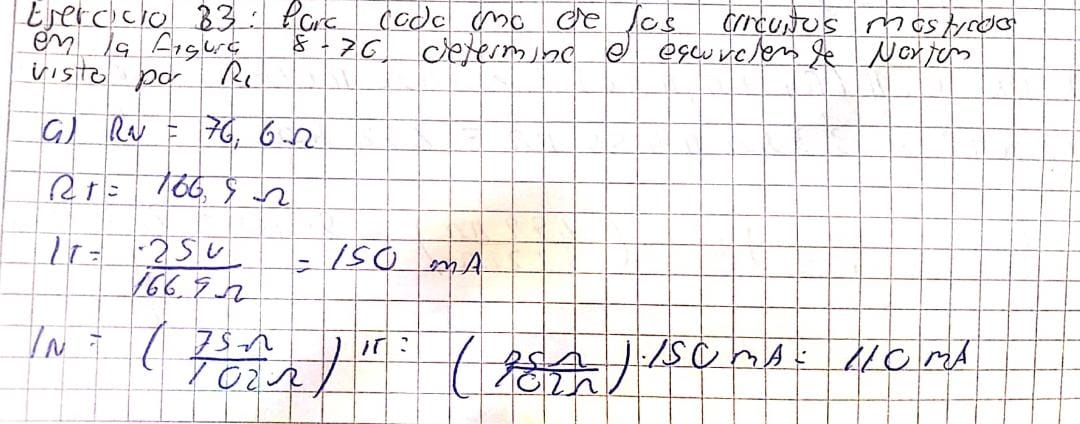 Ejercicio 23: Para cada uno de los circuitos mostrados
en la figura 8-76, determine el equivalente Norton
visto por RL
a) RN = 76,6 Ω
RT = 166,9 Ω
IT = 25V / 166,9 Ω = 150 mA
IN = (75Ω / 102Ω) IT = (75Ω / 102Ω) · 150 mA = 110 mA